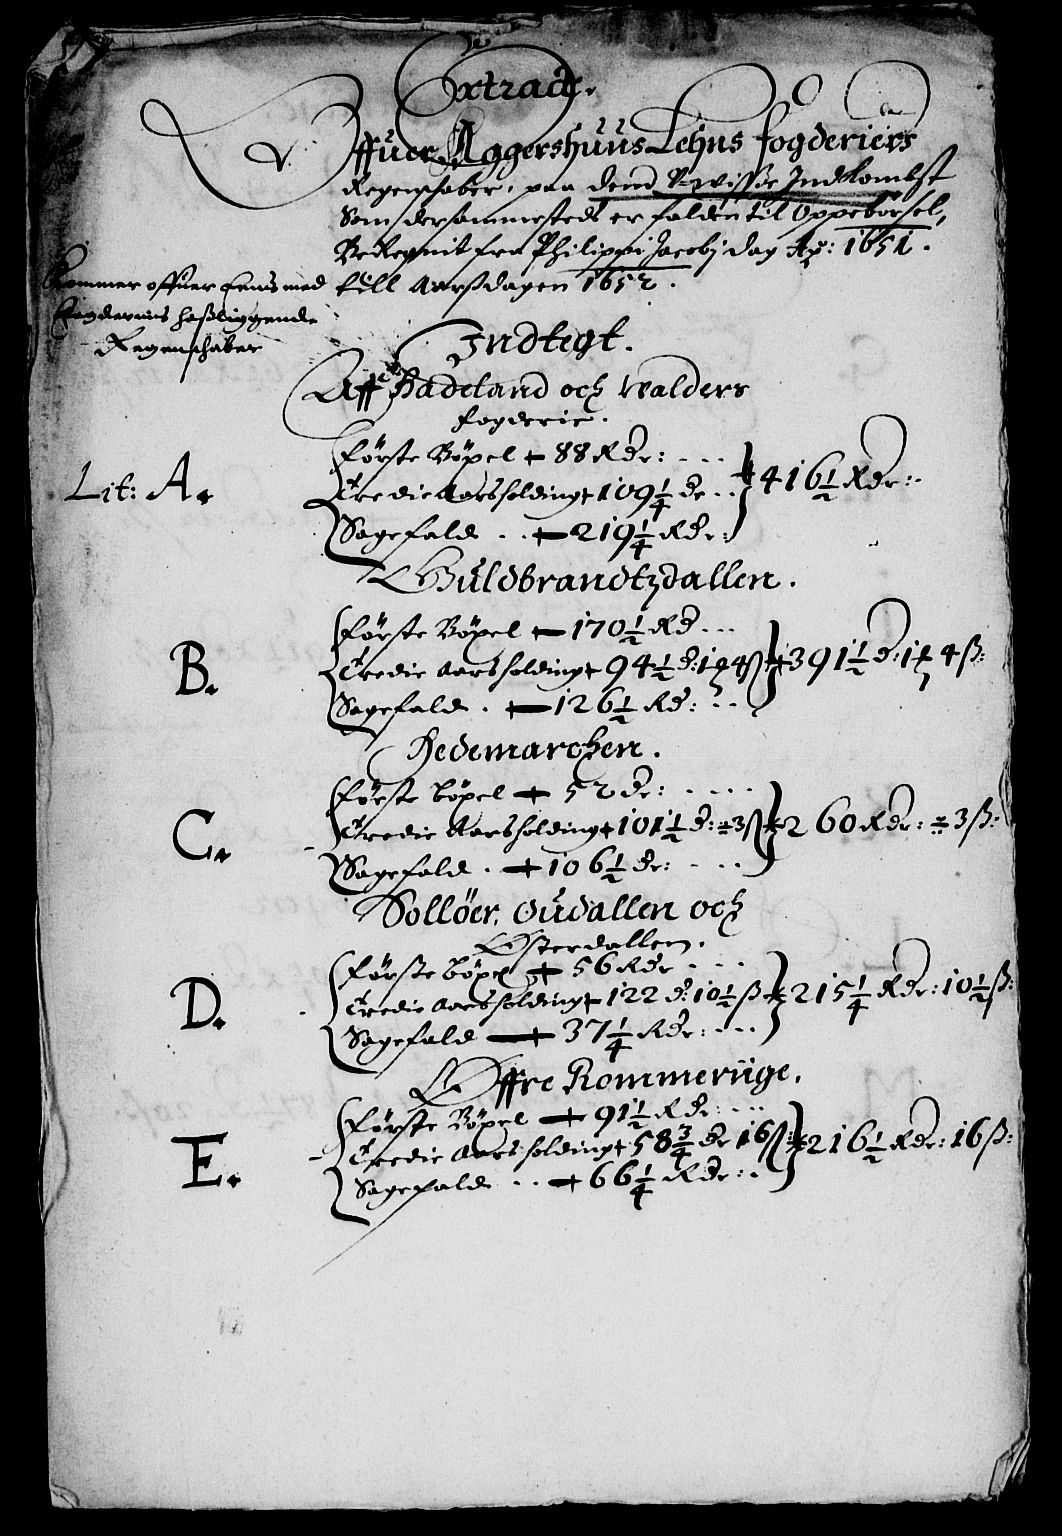 Extract.
Offuer Aggershuus Lehns fogderiers
Regenschaber, paa dend Uwisse Indkombst
Som dersammesteds er falden til Oppebørsel,
Beregnit fra Philippi Jacobj dag Ao: 1651.
till Aarsdagen 1652.
Kommer offuer Eens med
Fogderniis hosliggende
Regenschaber
Indtegt.
Aff Hadeland och Walders
fogderie.
Lit: A.
Første Bøxel + 88 Rdr:
Tredie Aarsholding + 109 1/4 dr
Sagefald + 219 1/4 Rdr:
416 1/2 Rdr:
Guldbrandtzdallen.
B.
Første Bøxel + 170 1/2 Rd
Tredie Aarsholding + 94 1/2 d: 1 ꝶ 4 ß
Sagefald + 126 1/2 Rd:
391 1/2 d: 1 ꝶ 4 ß:
Hedemarchen.
C.
Første bøxel + 52 dr:
Tredie Aarsholding + 101 1/2 d: ÷ 3 ß
Sagefald + 106 1/2 dr:
260 Rdr: ÷ 3 ß:
Solløer, Oudallen och
Østerdallen.
D.
Første bøxel + 56 Rdr
Tredie Aarsholding + 122 d: 10 1/2 ß
Sagefald + 37 1/4 Rdr:
215 1/4 Rdr: 10 1/2 ß:
Øffre Rommeriige.
E.
Første Bøxel + 91 1/2 Rdr:
Tredie Aarsholding + 58 3/4 dr 16 ß:
Sagefald + 66 1/4 Rdr:
216 1/2 Rdr: 16 ß: